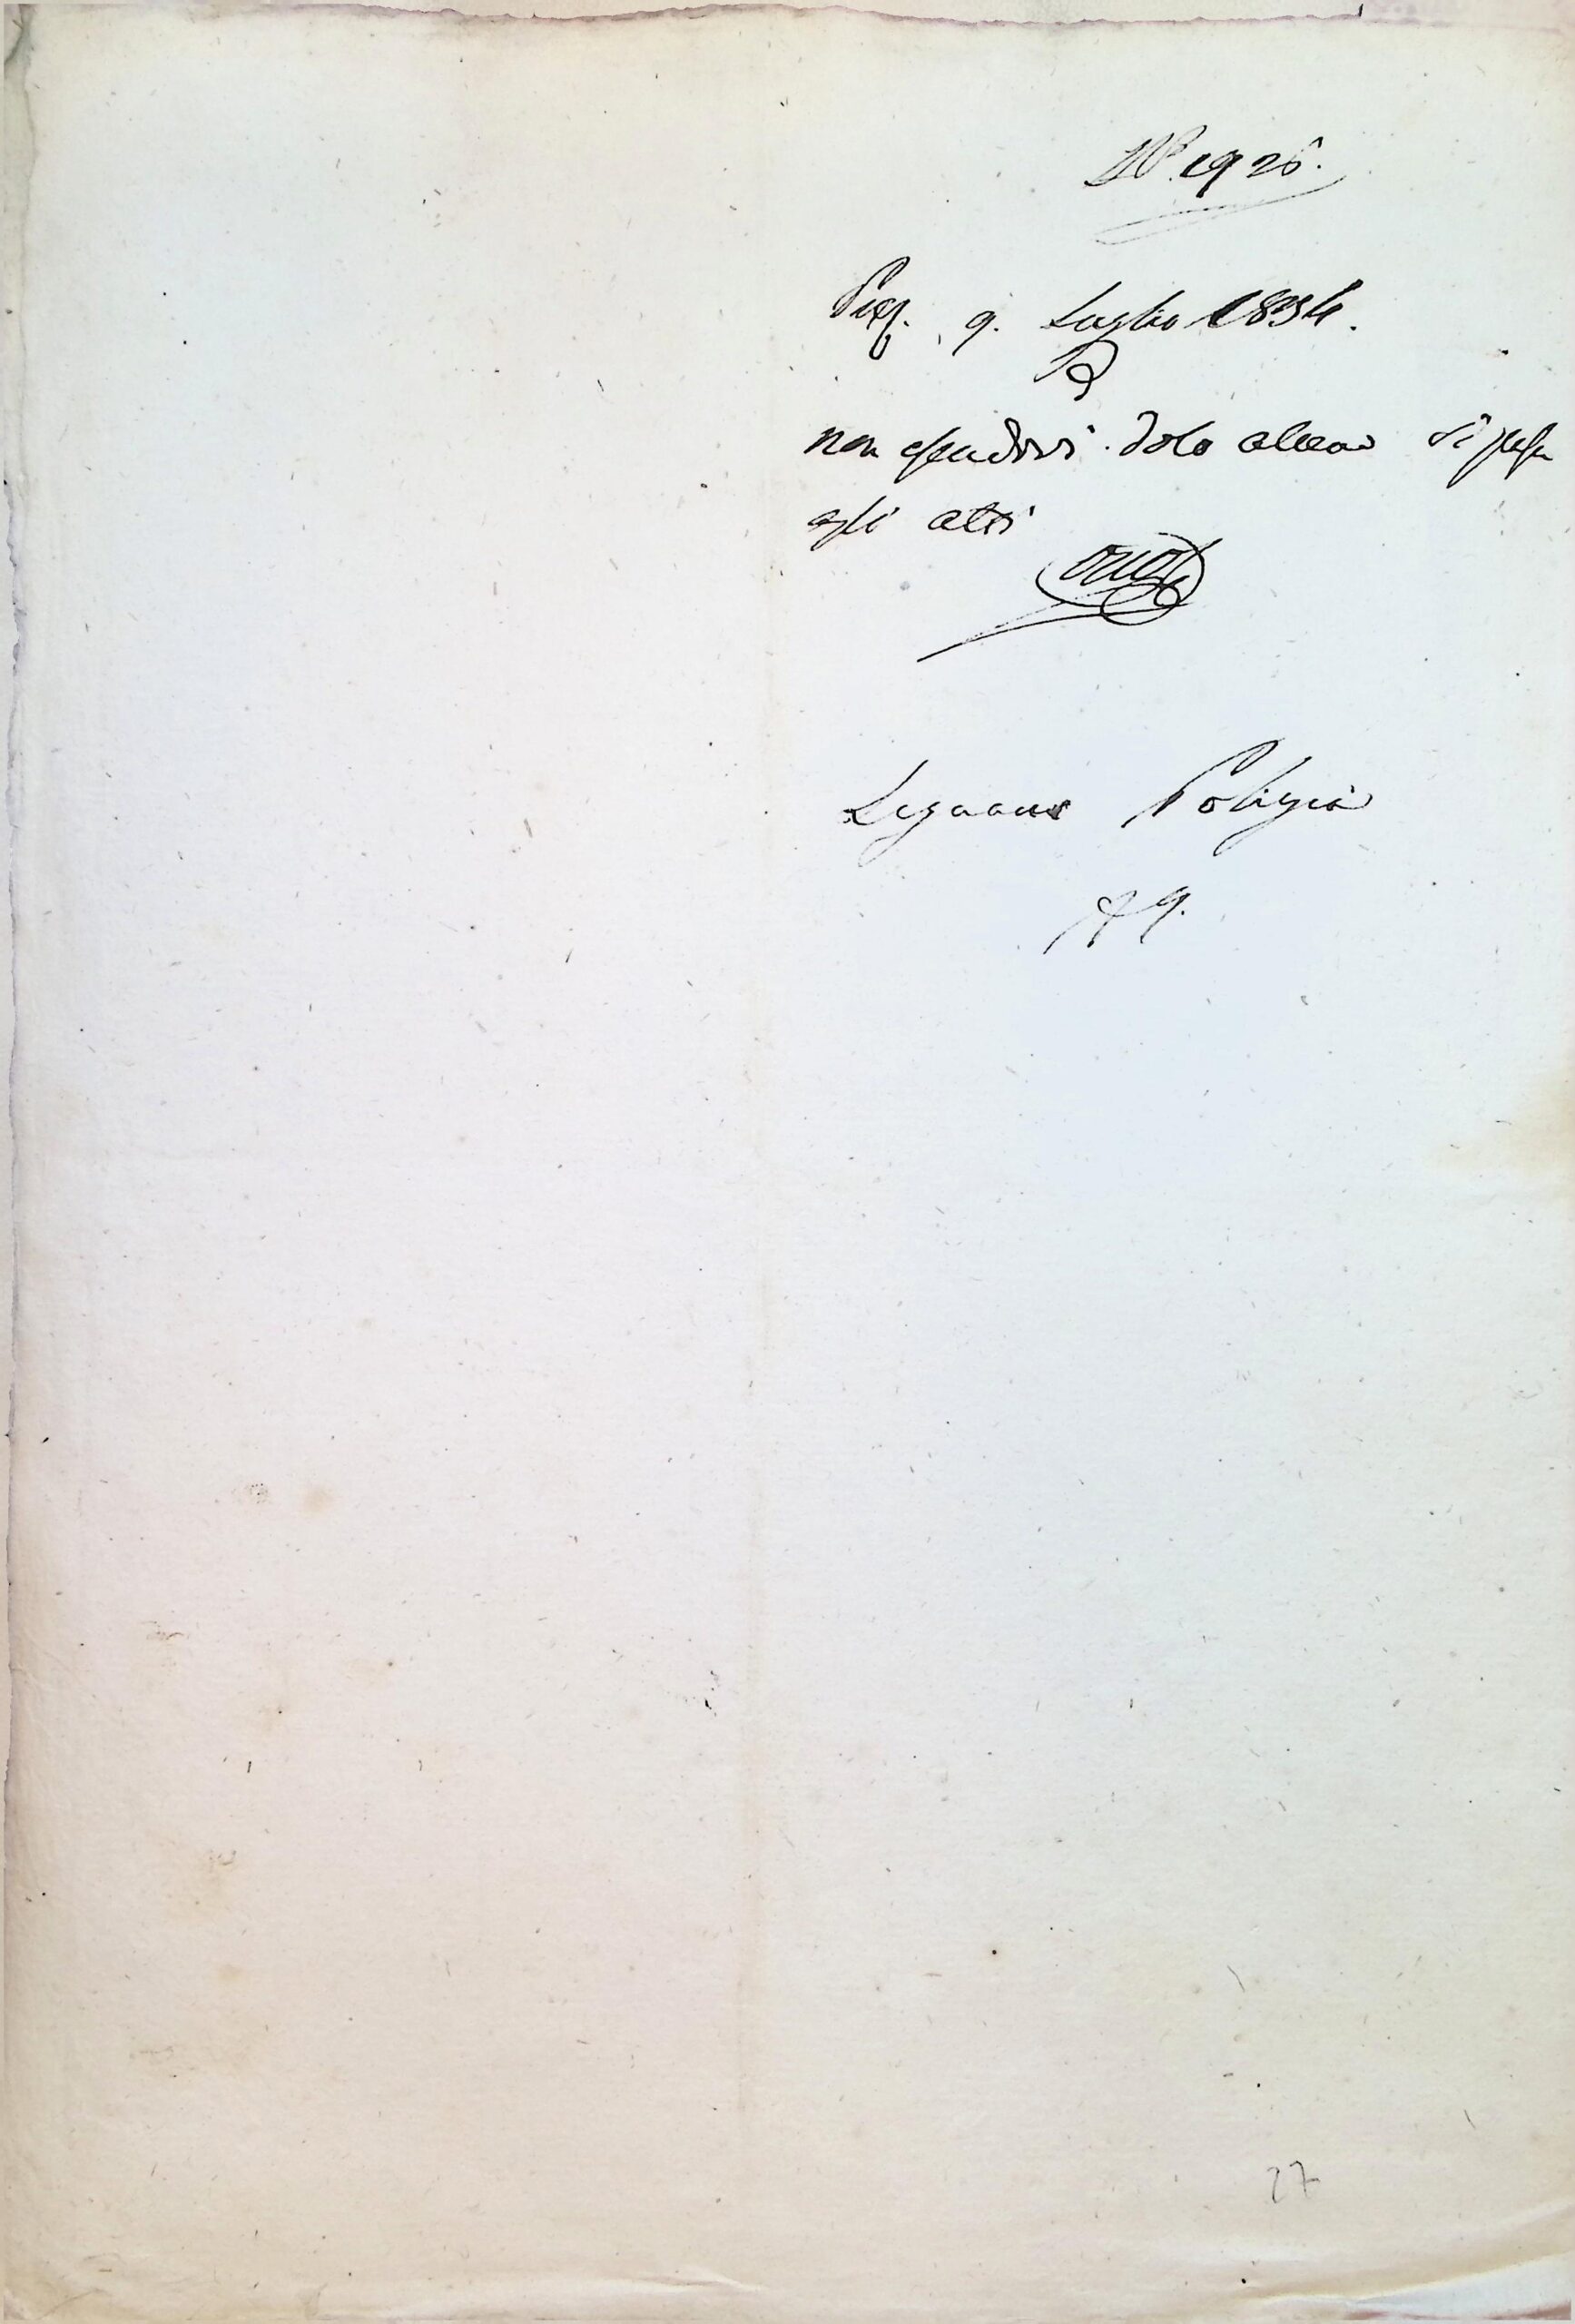 N.° 1926.
9. Luglio 1834.
non essendovi dolo alcuno si passa
agli atti
Legnano Polizia
A 9.
27